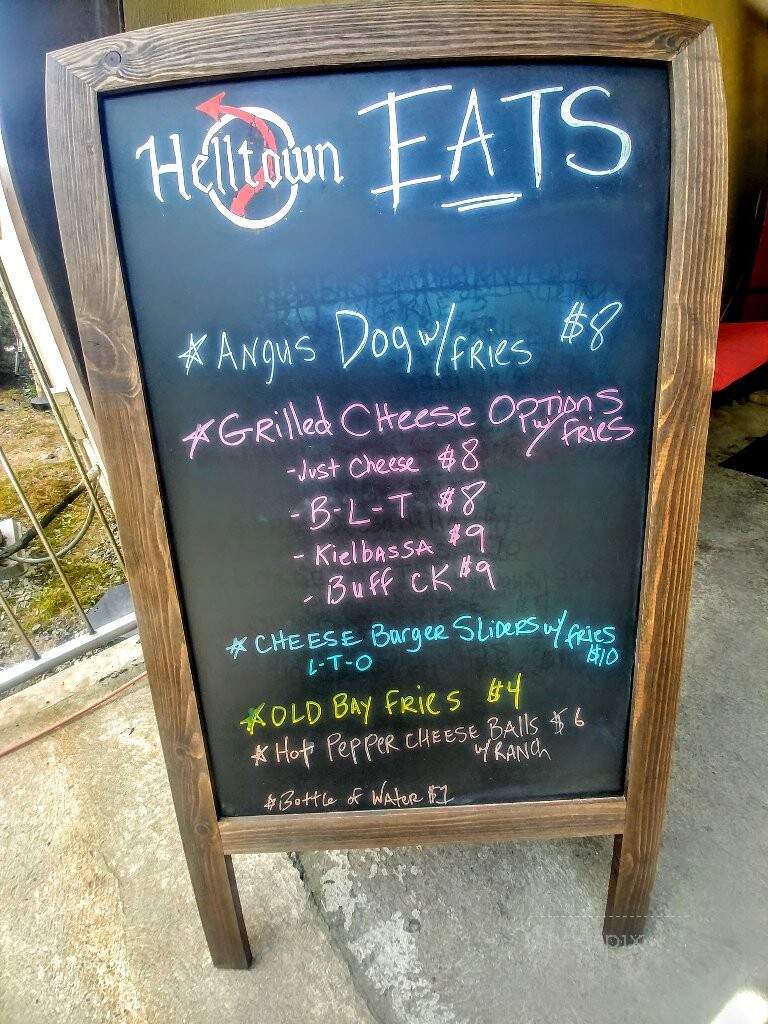 Helltown EATS
*Angus Dog w/ fries $8
*Grilled Cheese Options w/ fries
-Just Cheese $8
-B-L-T $8
-Kielbassa $9
-Buff CK $9
*CHEESE Burger Sliders w/ fries $10
L-T-O
*OLD BAY fries $4
*Hot Pepper CHEESE BAlls $6
w/ RANch
*Bottle of Water $1